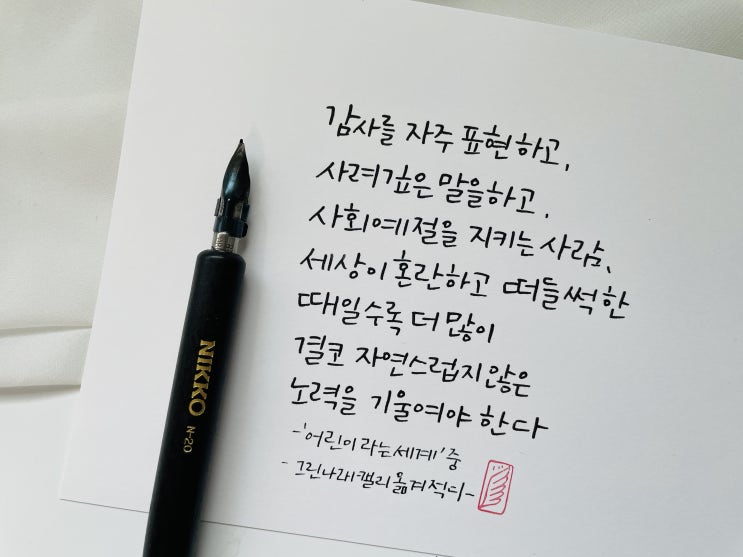 감사를 자주 표현하고,
사려깊은 말을하고,
사회예절을 지키는 사람,
세상이 혼란하고 떠들썩한
때일수록 더 많이
결코 자연스럽지않은
노력을 기울여야 한다
-'어린이라는세계' 중
- 그린나래캘리 옮겨적다-
NIKKO
N-20